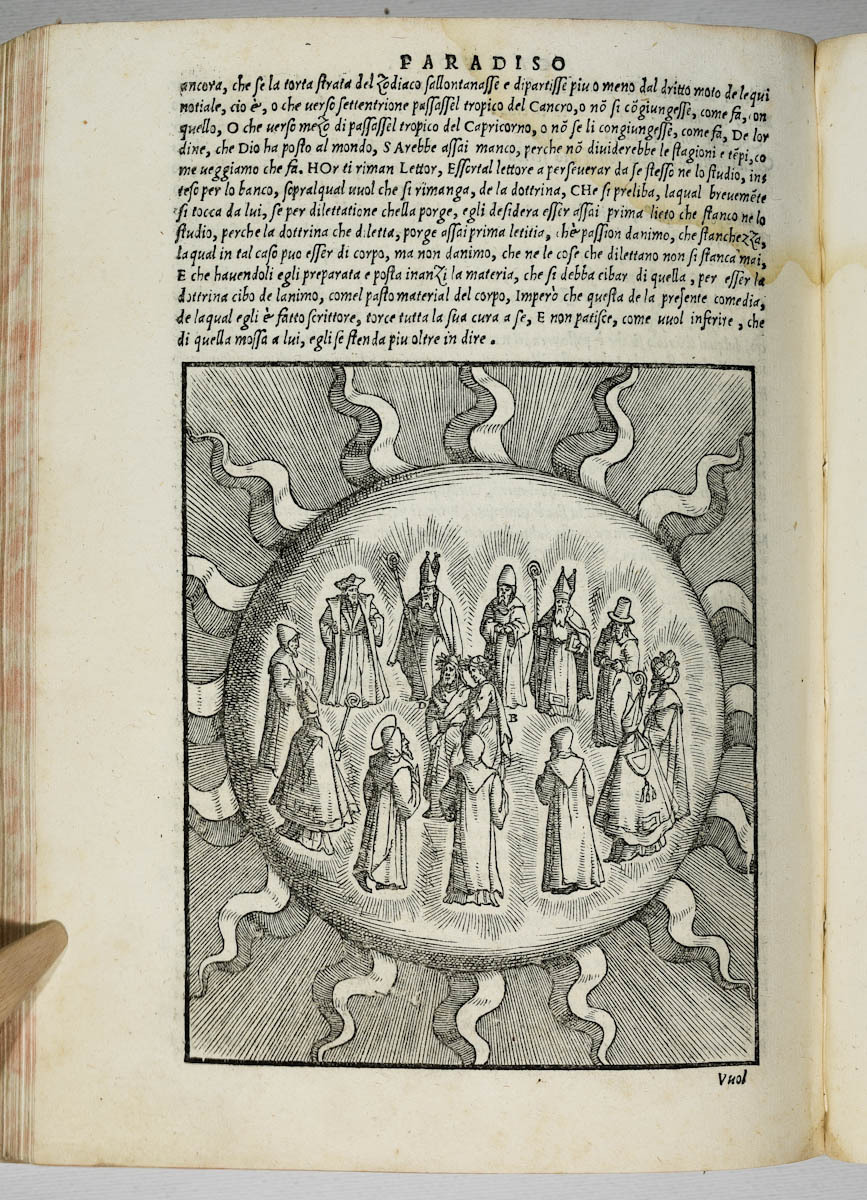 PARADISO
ancora, che se la torta strata del Zodiaco sallontanasse e dipartisse piu o meno dal dritto moto de lequi
notiale, cio è, o che verso settentrione passassel tropico del Cancro, o nõ si cõgiungesse, come fa, con
quello, O che uerso mezo di passassel tropico del Capricorno, o nõ se li congiungesse, come fa, De lor
dine, che Dio ha posto al mondo, SArebbe assai manco, perche nõ diuiderebbe le stagioni e tẽpi, co
me ueggiamo che fa. HOr ti riman Lettor, Essortal lettore a perseuerar da se stesso ne lo studio, in
teso per lo banco, sopralqual uuol che si rimanga, de la dottrina, CHe si preliba, laqual breuemẽte
si tocca da lui, se per dilettatione chella porge, egli desidera esser assai prima lieto che stanco ne lo
studio, perche la dottrina che diletta, porge assai prima letitia, chè passion danimo, che stanchezza,
laqual in tal caso puo esser di corpo, ma non danimo, che ne le cose che dilettano non si stanca mai,
E che hauendoli egli preparata e posta inanzi la materia, che si debba cibar di quella, per esser la
dottrina cibo de lanimo, comel pasto material del corpo, Imperò che questa de la presente comedia,
de laqual egli è fatto scrittore, torce tutta la sua cura a se, E non patisce, come uuol inferire, che
di quella mossa a lui, egli se stenda piu oltre in dire.
D
B
Vuol